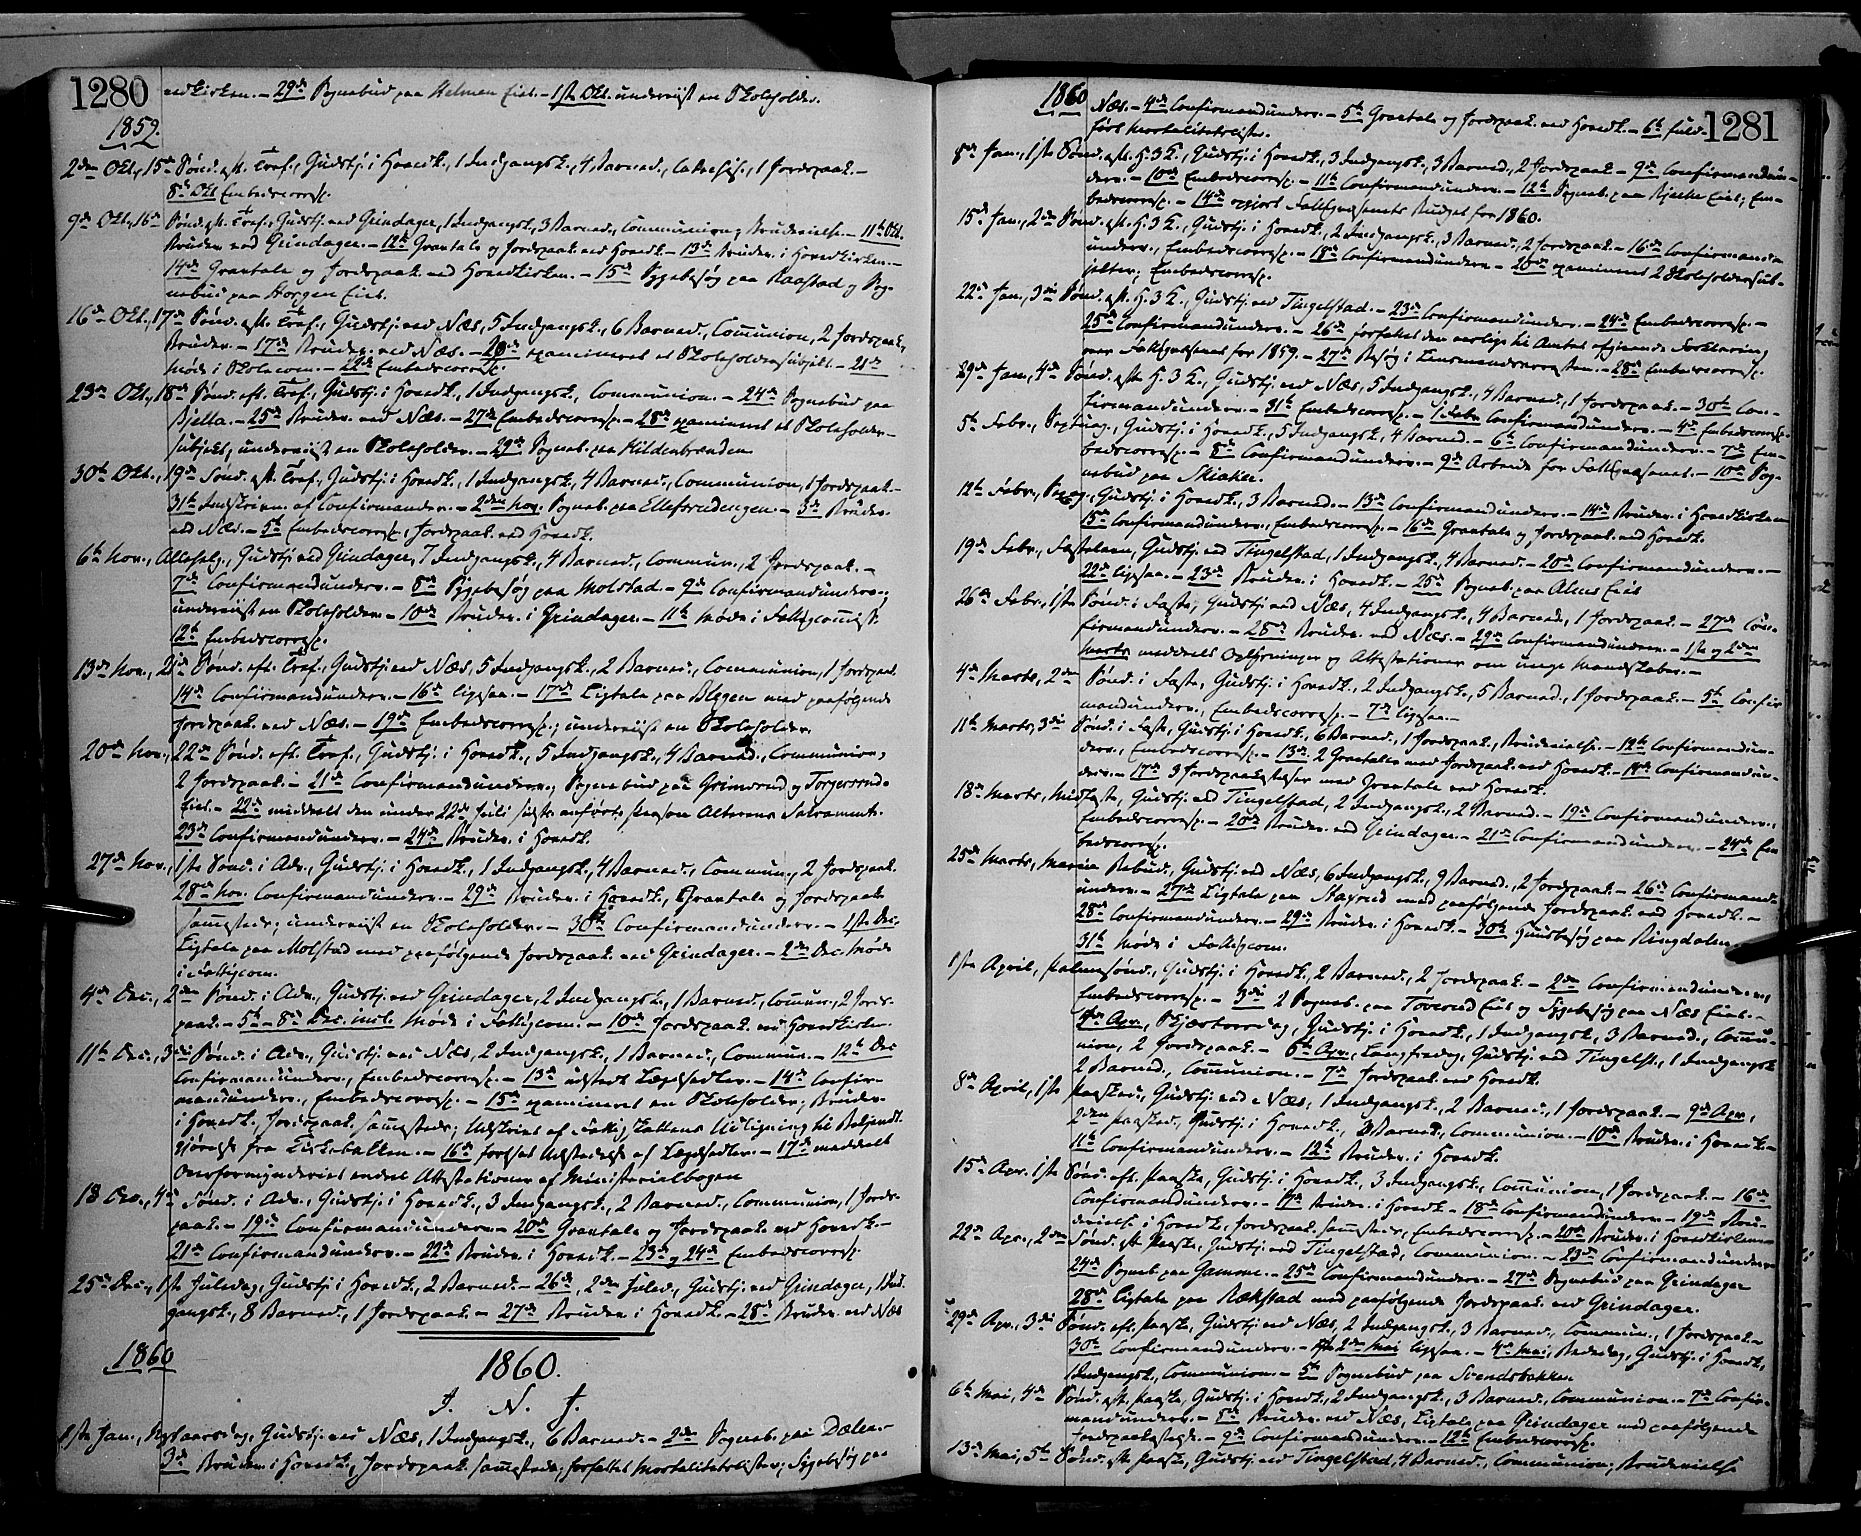 1280
vedkirken. – 29de Sognebud paa Helmen Eiet. – 1ste Okt. underviist en Skoleholder.
1859.
2den Okt., 15de Sønd. eft. Tref., Gudstj. i Hovedk., 1 Indgangsk., 4 Barned., Catechis., 1 Jordspaak. –
8de Okt Embedscorresp.
9de Okt., 16de Sønd. eft. Tref., Gudstj. ved Grindager, 1 Indgangsk., 3 Barned., Communion, Brudevielse. – 11te Okt.
Bruder. ved Grindager. – 12te Gravtale og Jordspaak. ved Hovedk. – 13de Bruder. i Hovedkirken. –
14de Gravtale og Jordspaak. ved Hovedkirken. – 15de Sygebesøg paa Raastad og Sog-
nebud paa Horgen Eiet.
16de Okt., 17de Sønd. eft. Tref., Gudstj. ved Næs, 5 Indgangsk., 6 Barned., Communion, 2 Jordspaak.,
Bruder. – 17de Bruder. ved Næs. – 20de examineret et Skoleholdersubjekt. – 21de
Møde i Skolecom. – 22de Embedscorresp.
23de Okt., 18de Sønd. eft. Tref., Gudstj. i Hovedk., 1 Indgangsk., Communion. – 24de Sognebud paa
Bjella. – 25de Bruder. ved Næs. – 27de Embedscorresp. – 28de examineret et Skoleholder-
subjekt, underviist en Skoleholder. – 29de Sogneb. paa Hildenbrænden
30te Okt., 19de Sønd. eft. Tref., Gudstj. i Hovedk., 1 Indgangsk., 4 Barned., Communion, 1 Jordspaak. –
31te Indskrivn. af Confirmander. – 2den Nov. Sogneb. paa Elleftrudengen. – 3de Bruder.
ved Næs. – 5te Embedscorresp., Jordspaak. ved Hovedk.
6te Nov., Allehelg., Gudstj. ved Grindager, 7 Indgangsk., 4 Barned., Commun., 2 Jordspaak. –
7de Confirmandunderv. – 8de Sygebesøg paa Molstad. – 9de Confirmandunderv.,
underviist en Skoleholder. – 10de Bruder. i Grindager. – 11te Møde i Fattigcommiss.
12te Embedscorresp.
13de Nov., 21de Sønd. eft. Tref., Gudstj. ved Næs, 5 Indgangsk., 2 Barned., Communion, 1 Jordspaak.
14de Confirmandunderv. – 16de ligesaa. – 17de Ligtale paa Blegen med paafølgende
Jordspaak. ved Næs. – 19de Embedscorresp.; underviist en Skoleholder.
20de Nov., 22de Sønd. eft. Tref., Gudstj. i Hovedk., 5 Indgangsk., 4 Barned., Communion,
2 Jordspaak. – 21de Confirmandunderv., Sognebud paa Grimsrud og Torgersrud-
Eiet. – 22de meddelt den under 22de Juli sidste anførte Person Alterens Sakrament.
23de Confirmandunderv. – 24de Bruder. i Hovedk.
27de Nov., 1ste Sønd. i Adv., Gudstj. i Hovedk., 1 Indgangsk., 4 Barned., Commun., 2 Jordspaak.
28de Nov. Confirmandunderv. – 29de Bruder. i Hovedk., Gravtale og Jordspaak.
sammested; underviist en Skoleholder. – 30te Confirmandunderv. – 1ste Dec.
Ligtale paa Molstad med paafølgende Jordspaak. ved Grindager. – 2den Dec. Møde
i Fattigcom.
4de Dec., 2den Sønd. i Adv., Gudstj. ved Grindager, 2 Indgangsk., 1 Barned., Commun., 2 Jords-
paak. – 5te – 8de Dec. incl. Møde i Fattigcom. – 10de Jordspaak. ved Hovedkirken.
11te Dec., 3die Sønd. i Adv., Gudstj. ved Næs, 2 Indgangsk., 1 Barned., Commun. – 12te Dec
Confirmandunderv., Embedscorresp. – 13de udstedt Lægdsedler. – 14de Confir-
mandunderv., Embedscorresp. – 15de examineret en Skoleholder; Bruder.
i Hovedk., Jordspaak. sammesteds; Udskrivt af Fattig Kattens Udligning til Bekjendt
gjørelse fra Kirkebakken. – 16de fortsat Udstedelse af Lægdsedler. – 17de meddelt
Overformynderiet endel Attestationer af Ministerialbogen
18 Dec., 4de Sønd. i Adv., Gudstj. i Hovedk., 3 Indgangsk., 2 Barned., Communion, 1 Jords-
paak. – 19de Confirmandunderv. – 20de Gravtale og Jordspaak. ved Hovedk. –
21de Confirmandunderv. – 22de Bruder. i Hovedk. – 23de og 24de Embedscorresp.
25de Dec., 1ste Juledag, Gudstj. i Hovedk., 2 Barned. – 26de, 2den Juled., Gudstj. ved Grindager, 1 Ind-
gangsk., 8 Barned., 1 Jordspaak. – 27de Bruder. i Hovedk. – 28de Bruder. ved Næs
1860
1860.
I. N. J.
1ste Jan., Nytaarsdag, Gudstj. ved Næs, 1 Indgangsk., 6 Barned. – 2den Sogneb. paa Dælen. –
3die Bruder. i Hovedk., Jordspaak. sammesteds; forfattet Mortalitetslister; Sygebesøg paa
1281
1860
Næs. – 4de Confirmandunderv. – 5te Gravtale og Jordspaak. ved Hovedk. – 6te fuld-
ført Mortalitetslister.
8de Jan., 1ste Sønd. eft. H. 3 K., Gudstj. i Hovedk., 3 Indgangsk., 3 Barned., 2 Jordspaak. – 9de Confirmandun-
derv. – 10de Embedscorresp. – 11te Confirmandunderv. – 12te Sogneb. paa Bjelke Eiet, Em-
bedscorresp. – 14de opgjort Fattigvæsenets Budget for 1860.
15de Jan., 2den Sønd. eft. H. 3 K., Gudstj. i Hovedk., 2 Indgangsk., 3 Barned., 2 Jordspaak. – 16de Confirmand-
underv., Embedscorresp. – 18de Confirmandunderv. – 20de examineret 2 Skoleholdersub-
jekter; Embedscorresp.
22de Jan., 3die Sønd. eft. H. 3 K., Gudstj. ved Tingelstad. – 23de Confirmandunderv. – 24de Embedscorresp. –
25de Confirmandunderv. – 26de forfattet den aarlige til Amtet afgivende Forklaring
over Fattigvæsenet for 1859. – 27de Besøg i Lensmandsarresten. – 28de Embedscorresp.
29de Jan., 4de Sønd. eft. H. 3 K., Gudstj. ved Næs, 5 Indgangsk., 4 Barned., 1 Jordspaak. – 30te Con-
firmandunderv. – 31te Embedscorresp. – 1 Febr. Confirmandunderv. – 4de Embedscorresp.
5te Febr., Septuag., Gudstj. i Hovedk., 5 Indgangsk., 4 Barned. – 6te Confirmandunderv. – 7de Em-
bedscorresp. – 8de Confirmandunderv. – 9de Arbeide for Fattigvæsenet. – 10de Sog-
nebud paa Skiaker.
12te Febr., Sexag., Gudstj. i Hovedk., 3 Barned. – 13de Confirmandunderv. – 14de Bruder. i Hovedkirken
15de Confirmandunderv., Embedscorresp. – 16de Gravtale og Jordspaak. ved Hovedk.
19de Febr., Fastelavn, Gudstj. ved Tingelstad, 1 Indgangsk., 4 Barned. – 20de Confirmandunderv. –
22de ligesaa. – 23de Bruder. i Hovedk. – 25de Sogneb. paa Alms Eiet
26de Febr., 1ste Sønd. i Faste, Gudstj. ved Næs, 4 Indgangsk., 4 Barned., 1 Jordspaak. – 27de Con-
firmandunderv. – 28de Bruder. ved Næs. – 29de Confirmandunderv. – 1ste og 2den
Marts meddeelt Oplysninger og Attestationer om unge Mandskaber. –
4de Marts, 2den Sønd. i Faste, Gudstj. i Hovedk., 2 Indgangsk., 5 Barned., 1 Jordspaak. – 5te Confir-
mandunderv., Embedscorresp. – 7de ligesaa. –
11te Marts, 3die Sønd. i Faste, Gudstj. i Hovedk., 6 Barned., 1 Jordspaak., Brudevielse. – 12te Confirmandun-
derv., Embedscorresp. – 13de 2 Gravtaler med Jordspaak. ved Hovedk. – 14de Confirmandun-
derv. – 17de 3 Jordspaakastelser med Gravtale ved Hovedk.
18de Marts, Midfaste, Gudstj. ved Tingelstad, 2 Indgangsk., 2 Barned. – 19de Confirmandunderv.,
Embedscorresp. – 20de Bruder. ved Grindager. – 21de Confirmandunderv. – 24de Em-
bedscorresp.
25de Marts, Mariæ Bebud., Gudstj. ved Næs, 6 Indgangsk., 9 Barned., 2 Jordspaak. – 26de Confirmand-
underv. – 27de Ligtale paa Haxrud med paafølgende Jordspaak. ved Hovedk. –
28de Confirmandunderv. – 29de Bruder. i Hovedk. – 30te Huusbesøg paa Ringdalen
31te Møde i Fattigcom.
1ste April, Palmesønd., Gudstj. i Hovedk., 2 Barned., 2 Jordspaak. – 2den Confirmandunderv.,
Embedscorresp. – 3die 2 Sogneb. paa Toverud Eiet og Sygebesøg paa Næs Eiet. –
5te Apr., Skjærtorsdag, Gudstj. i Hovedk., 1 Indgangsk., 3 Barned., Commu-
nion, 2 Jordspaak. – 6te Apr., Langfredag, Gudstj. ved Tingelst., 1 Indgangsk.
2 Barned., Communion. – 7de Jordspaak. ved Hovedk.
8de April, 1ste Paasked., Gudstj. ved Næs, 1 Indgangsk., 2 Barned., 1 Jordspaak. – 9de Apr.,
2den Paasked., Gudstj. i Hovedk., Barned., Communion. – 10de Bruder. i Hovedk. –
11te Confirmandunderv. – 12te Bruder. i Hovedk.
15de Apr. 1ste Sønd. eft. Paaske, Gudstj. i Hovedk., 3 Indgangsk., Communion, 1 Jordspaak. – 16de
Confirmandunderv. – 17de Bruder. i Hovedk. – 18de Confirmandunderv. – 19de Bru-
devielse i Hovedk., Jordspaak. sammesteds, Embedscorresp. – 20de Bruder. i Hovedkirken
22de Apr., 2den Sønd. eft. Paaske, Gudstj. ved Tingelstad, Communion. – 23de Confirmandunderv.
24de Sogneb. paa Gamme. – 25de Confirmandunderv. – 27de Sognebud paa Grindager
28de Ligtale paa Rækstad med paafølgende Jordspaak. ved Grindager.
29de Apr., 3die Sønd. eft. Paaske, Gudstj. ved Næs, 2 Indgangsk., 3 Barned., Commun., 1 Jordspaak. –
30te Confirmandunderv. – 2den Mai ligesaa. – 4de Mai, Bededag, Gudstj. i Hovedk.,
1 Indgangsk., Communion. – 5te Sognebud paa Svendsbakken
6te Mai, 4de Sønd. eft. Paaske, Gudstj. i Hovedk., 2 Indgangsk., 3 Barned., Communion. – 7de Confir-
mandunderv. – 8de Bruder. ved Næs, Ligtale paa Grindager med paafølgende
Jordspaakastelse. – 9de Confirmandunderv. – 12te Embedscorresp.
13de Mai, 5te Sønd. eft. Paaske, Gudstj. ved Tingelstad, 4 Barned., Communion, Brudevielse